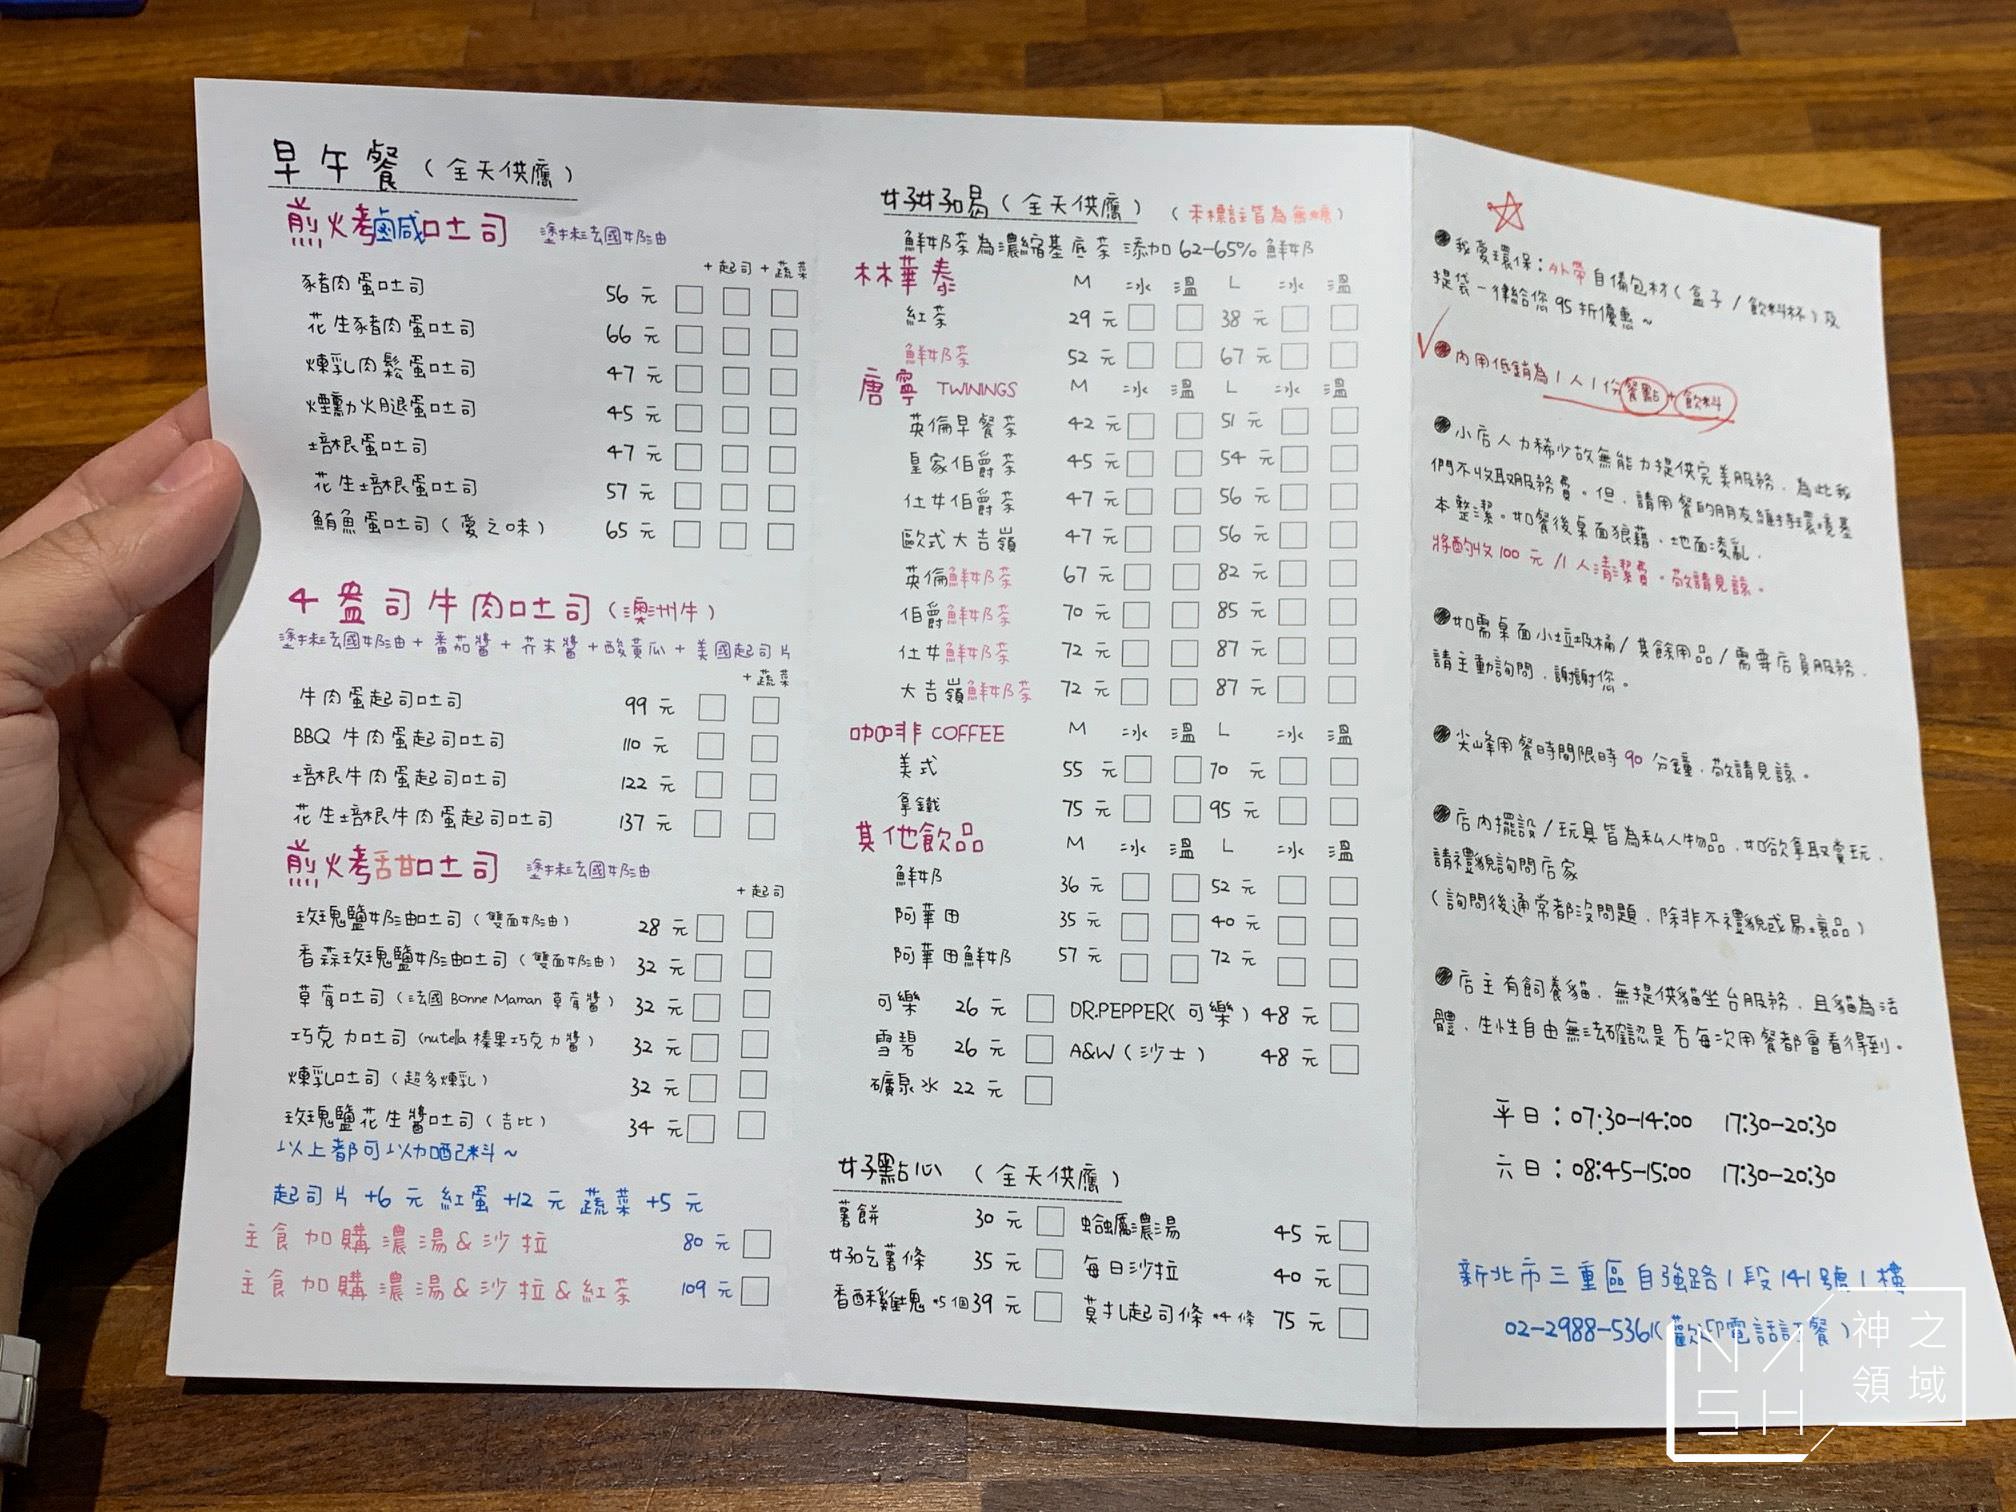 早午餐（全天供應）
煎烤鹹吐司 塗抹法國奶油
+起司 +蔬菜
豬肉蛋吐司 56 元
花生豬肉蛋吐司 66 元
煉乳肉鬆蛋吐司 47 元
煙勳火腿蛋吐司 45 元
培根蛋吐司 47 元
花生培根蛋吐司 57 元
鮪魚蛋吐司（愛之味） 65 元
4 盎司牛肉吐司（澳洲牛）
塗抹法國奶油+番茄醬+芥末醬+酸黃瓜+美國起司片
+蔬菜
牛肉蛋起司吐司 99 元
BBQ 牛肉蛋起司吐司 110 元
培根牛肉蛋起司吐司 122 元
花生培根牛肉蛋起司吐司 137 元
煎烤甜吐司 塗抹法國奶油
+起司
玫瑰鹽奶油吐司（雙面奶油） 28 元
香蒜玫瑰鹽奶油吐司（雙面奶油） 32 元
草莓吐司（法國 Bonne Maman 草莓醬） 32 元
巧克力吐司（nutella 榛果巧克力醬） 32 元
煉乳吐司（超多煉乳） 32 元
玫瑰鹽花生醬吐司（吉比） 34 元
以上都可以加配料~
起司片 +6 元 紅蛋 +12 元 蔬菜 +5 元
主食加購濃湯&沙拉 80 元
主食加購濃湯&沙拉&紅茶 109 元
好好喝（全天供應）（未標註皆為無糖）
鮮奶茶為濃縮基底茶 添加 62-65% 鮮奶
林華泰 M 冰 溫 L 冰 溫
紅茶 29 元 38 元
鮮奶茶 52 元 67 元
唐寧 TWININGS M 冰 溫 L 冰 溫
英倫早餐茶 42 元 51 元
皇家伯爵茶 45 元 54 元
仕女伯爵茶 47 元 56 元
歐式大吉嶺 47 元 56 元
英倫鮮奶茶 67 元 82 元
伯爵鮮奶茶 70 元 85 元
仕女鮮奶茶 72 元 87 元
大吉嶺鮮奶茶 72 元 87 元
咖啡 COFFEE M 冰 溫 L 冰 溫
美式 55 元 70 元
拿鐵 75 元 95 元
其他飲品 M 冰 溫 L 冰 溫
鮮奶 36 元 52 元
阿華田 35 元 40 元
阿華田鮮奶 57 元 72 元
可樂 26 元 DR.PEPPER（可樂） 48 元
雪碧 26 元 A&W（沙士） 48 元
礦泉水 22 元
好點心（全天供應）
薯餅 30 元 蛤蠣濃湯 45 元
好吃薯條 35 元 每日沙拉 40 元
香酥雞塊 *5 個 39 元 莫札起司條 *4 條 75 元
我愛環保：外帶自備包材（盒子/飲料杯）及
提袋一律給您 95 折優惠~
內用低銷為 1 人 1 份餐點+飲料
小店人力稀少故無能力提供完美服務，為此我
們不收取服務費。但，請用餐的朋友維持環境基
本整潔。如餐後桌面狼藉，地面凌亂，
將酌收 100 元 /1 人清潔費。敬請見諒。
如需桌面小垃圾桶/其餘用品/需要店員服務，
請主動詢問，謝謝您。
尖峰用餐時間限時 90 分鐘，敬請見諒。
店內擺設/玩具皆為私人物品，如欲拿取賞玩，
請禮貌詢問店家
（詢問後通常都沒問題，除非不禮貌或易壞品）
店主有飼養貓，無提供貓坐台服務，且貓為活
體，生性自由無法確認是否每次用餐都會看得到。
平日：07:30-14:00 17:30-20:30
六日：08:45-15:00 17:30-20:30
新北市三重區自強路 1 段 141 號 1 樓
02-2988-5361（歡迎電話訂餐）
NASH 神之領域